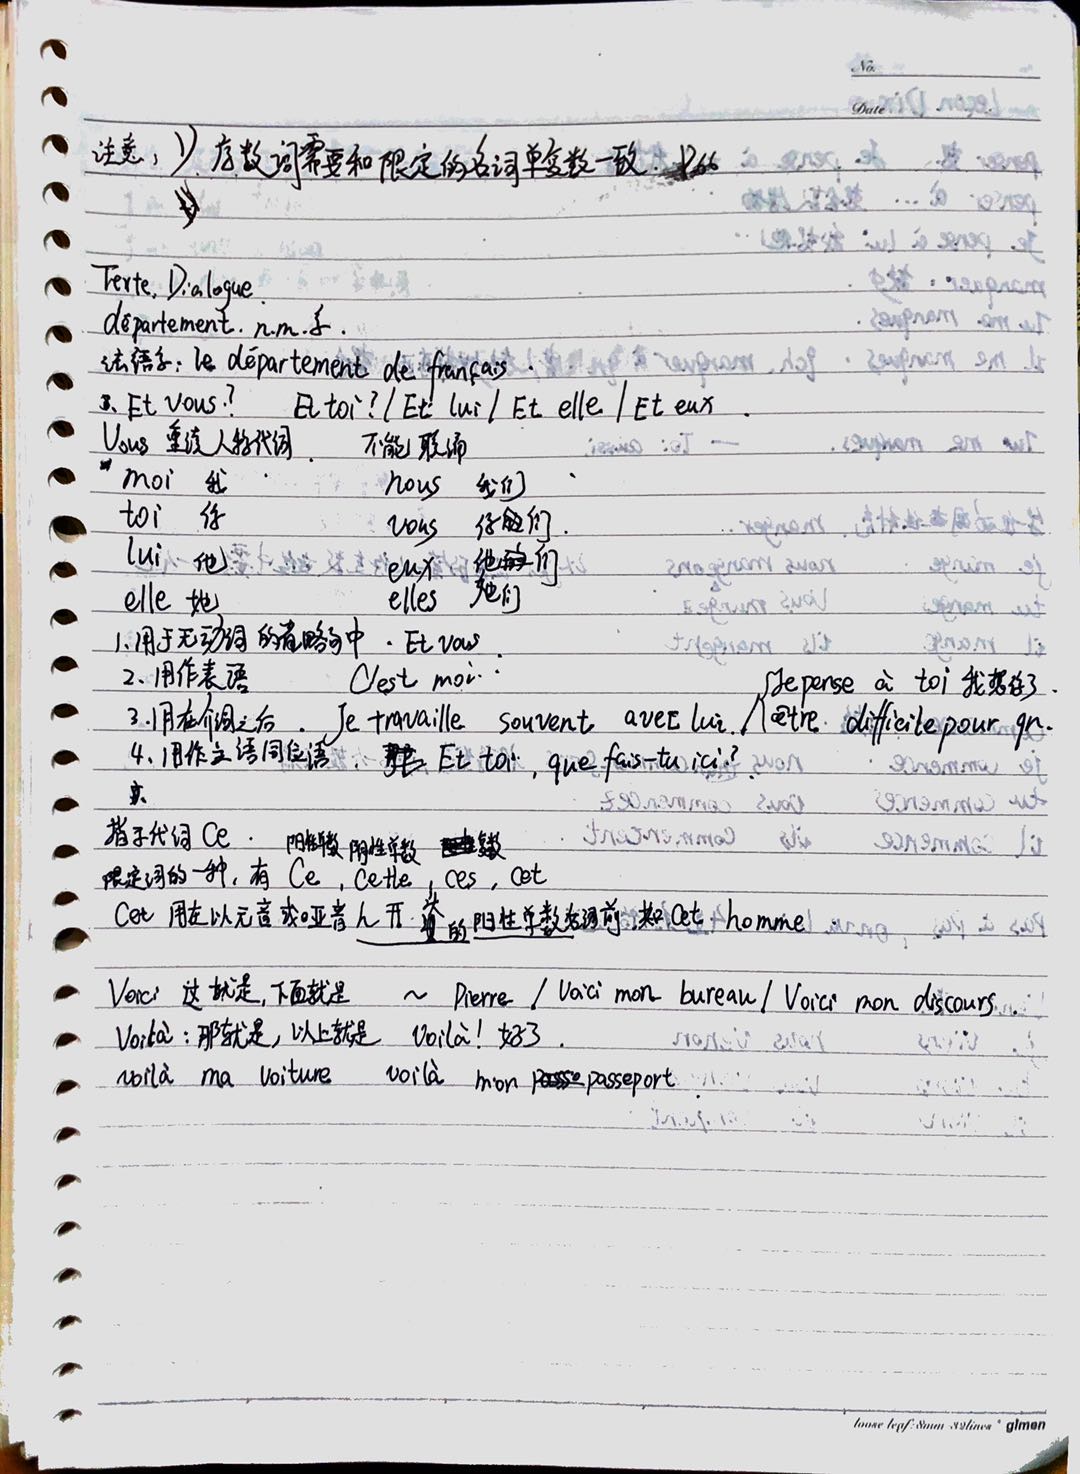 No.
Date
注意, 1) 序数词需要和限定的名词单复数一致. P266
Texte. Dialogue
département. n.m. 系.
法语系: le département de français.
3. Et vous? Et toi? / Et lui / Et elle / Et eux.
Vous 重读人称代词 不能联诵
moi 我 nous 我们
toi 你 vous 你们.
lui 他 eux 他们
elle 她 elles 她们
1. 用于无动词的省略句中. Et vous.
2. 用作表语 C'est moi.
Je pense à toi 我想你了.
3. 用在介词之后. Je travaille souvent avec lui. / être difficile pour qn.
4. 用作主语同位语. Et toi, que fais-tu ici?
指示代词 Ce. 阳性单数 阴性单数 复数
限定词的一种, 有 Ce, cette, ces, cet
Cet 用在以元音或哑音h开头的阳性单数名词前. 如 Cet homme.
Voici 这就是, 下面就是 ~ Pierre / Voici mon bureau / Voici mon discours.
Voilà: 那就是, 以上就是 Voilà! 好了.
voilà ma voiture voilà mon passeport.
loose leaf: 8mm 32lines glmen